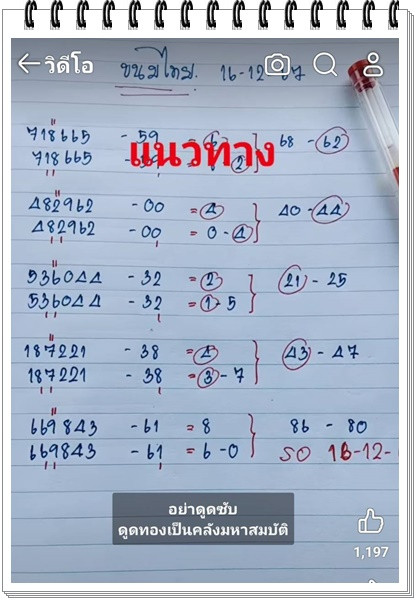 วิดีโอ
ขนมไทย. 16-12-67
718665 - 59 = 6
718665 - 59 2 } 68 - 62
แนวทาง
482962 - 00 = 4
482962 - 00 = 0 - 4 } 40 - 44
536044 - 32 = 2
536044 - 32 = 1 - 5 } 21 - 25
187221 - 38 = 4
187221 - 38 = 3 - 7 } 43 - 47
669843 - 61 = 8 86 - 80
669843 - 61 = 6 - 0 } SO 16-12-
อย่าดูดซับ
ดูดทองเป็นคลังมหาสมบัติ
1,197